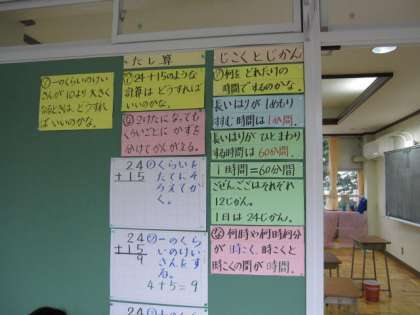 一のくらいのけい
さんが10より大きく
なるときは、どうすれ
ばいいのかな。
たし算
24+15のような
計算は どうすれば
いいのかな。
2けたになっても
くらいごとに かずを
分けてかんがえる。
24
+15
①くらいを
たてにそ
ろえてか
く。
24
+15
9
②一のくら
いのけい
さんをす
る。
4+5=9
24
じこくとじかん
何を どれだけの
時間でするのかな。
長いはりが1めもり
すすむ時間は1分間。
長いはりが ひとまわり
する時間は60分間。
1時間=60分間
ごぜん、ごごはそれぞれ
12じかん。
1日は24じかん。
何時や何時何分
が時こく、時こくと
時こくの間が時間。